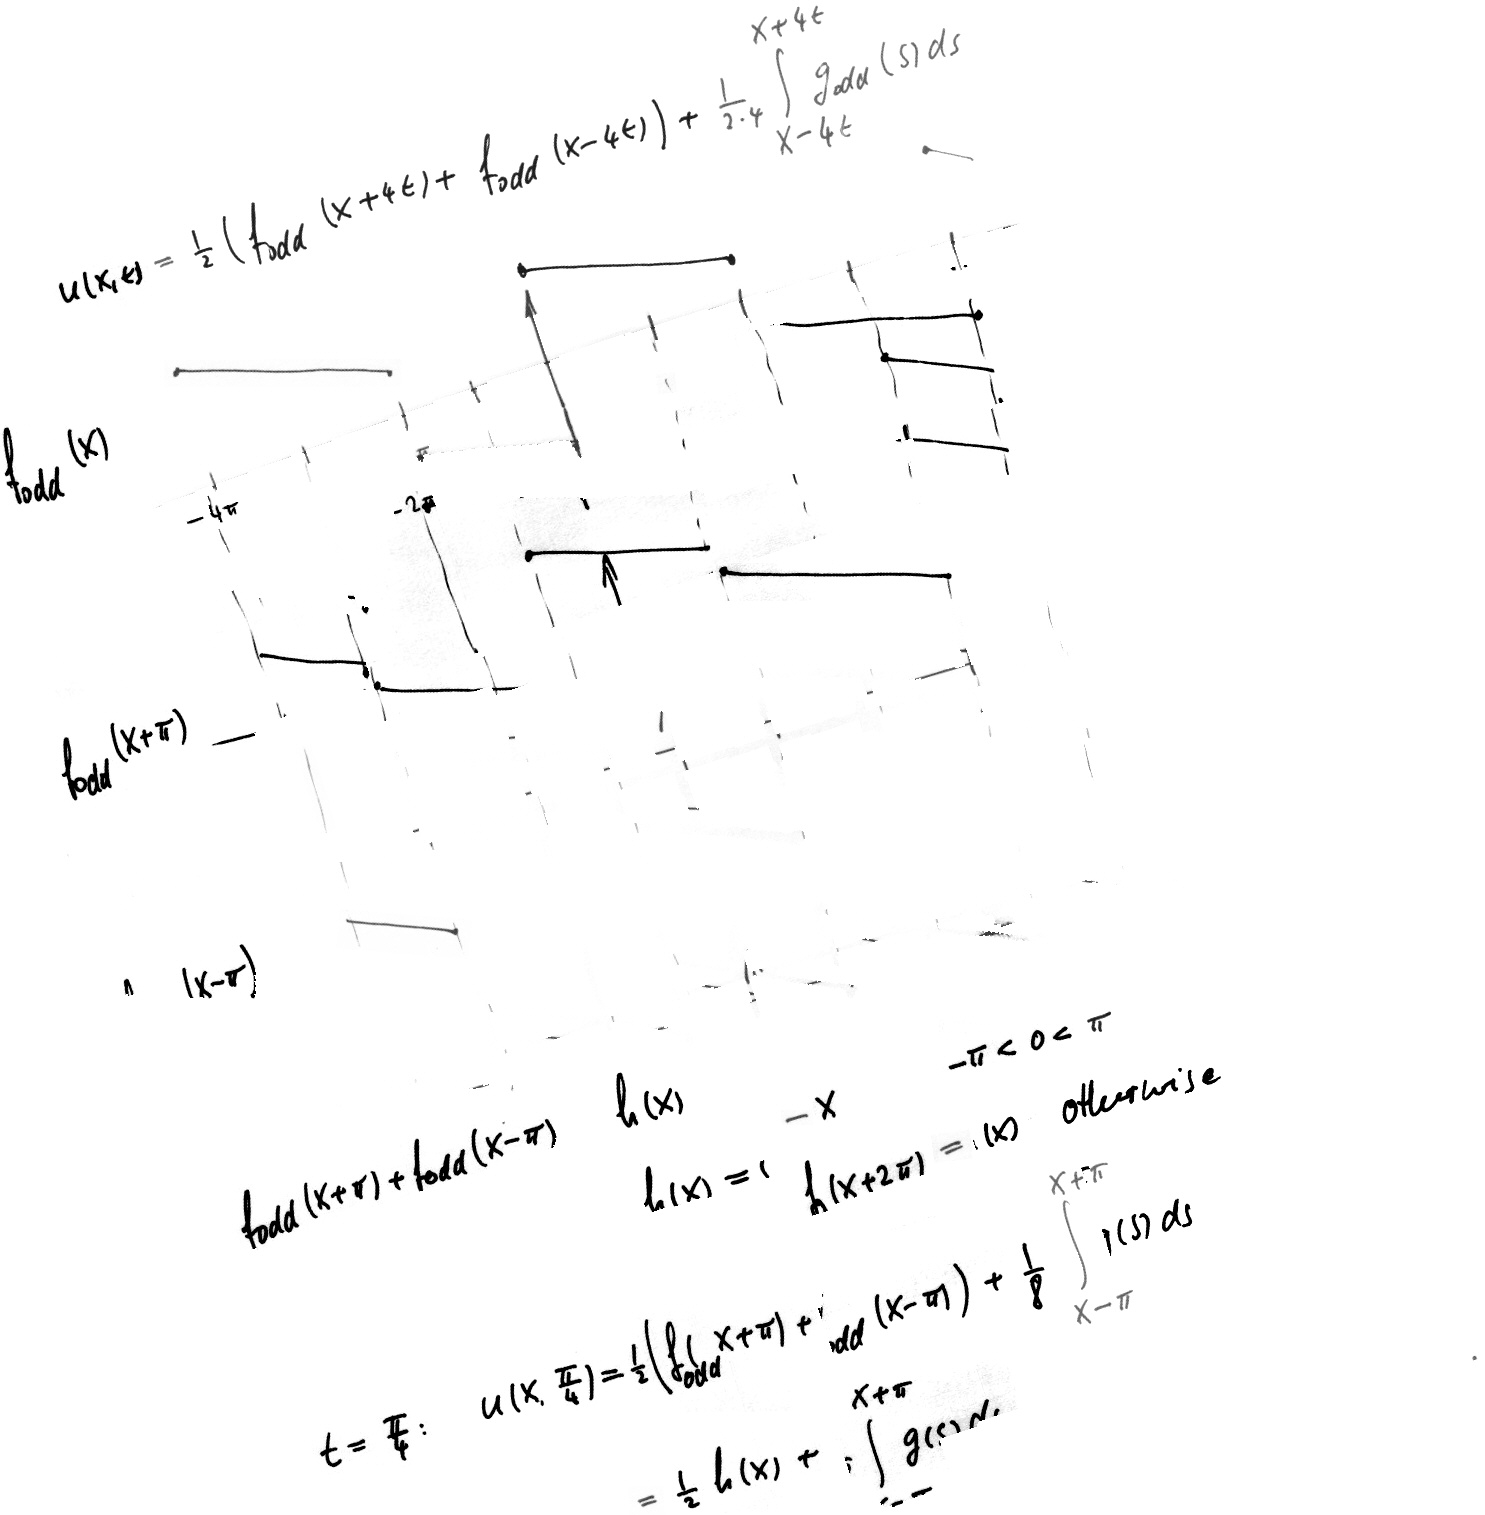 u(x,t) = 1/2 (f_odd (x+4t) + f_odd (x-4t)) + 1/(2·4) ∫_{x-4t}^{x+4t} g_odd (s) ds
f_odd (x)
-4π -2π
f_odd (x+π)
(x-π)
-π < 0 < π
h(x) -x
f_odd (x+π) + f_odd (x-π)
h(x) = h(x+2π) = (x) otherwise
t = π/4: u(x, π/4) = 1/2 (f_odd (x+π) + odd (x-π)) + 1/8 ∫_{x-π}^{x+π} (s) ds
= 1/2 h(x) + ∫^{x+π} g(s)